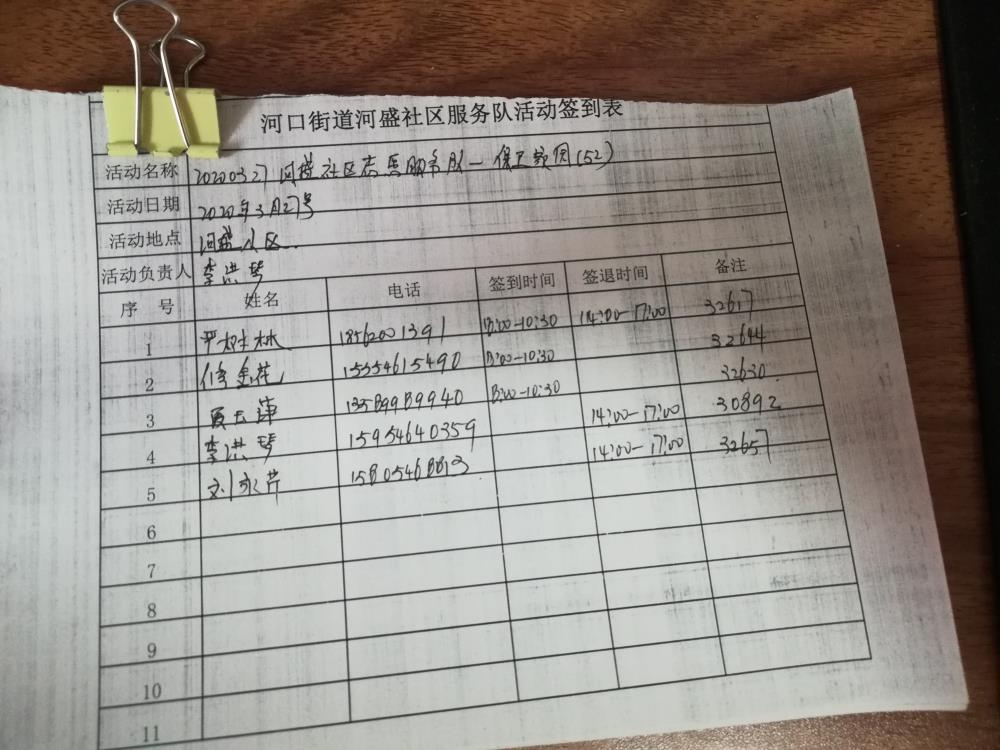 河口街道河盛社区服务队活动签到表
活动名称 20200327河盛社区志愿服务队一保卫家园(52)
活动日期 2020年3月27号
活动地点 河盛小区
活动负责人 李洪琴
序号 姓名 电话 签到时间 签退时间 备注
1 严树林 18562001391 8:00-10:30 14:00-17:00 32617
2 金花 15554615490 8:00-10:30 32644
3 13589989940 8:00-10:30 32630
4 李洪琴 15954640359 14:00-17:00 30892
5 刘永芹 15805468813 14:00-17:00 32657
6
7
8
9
10
11